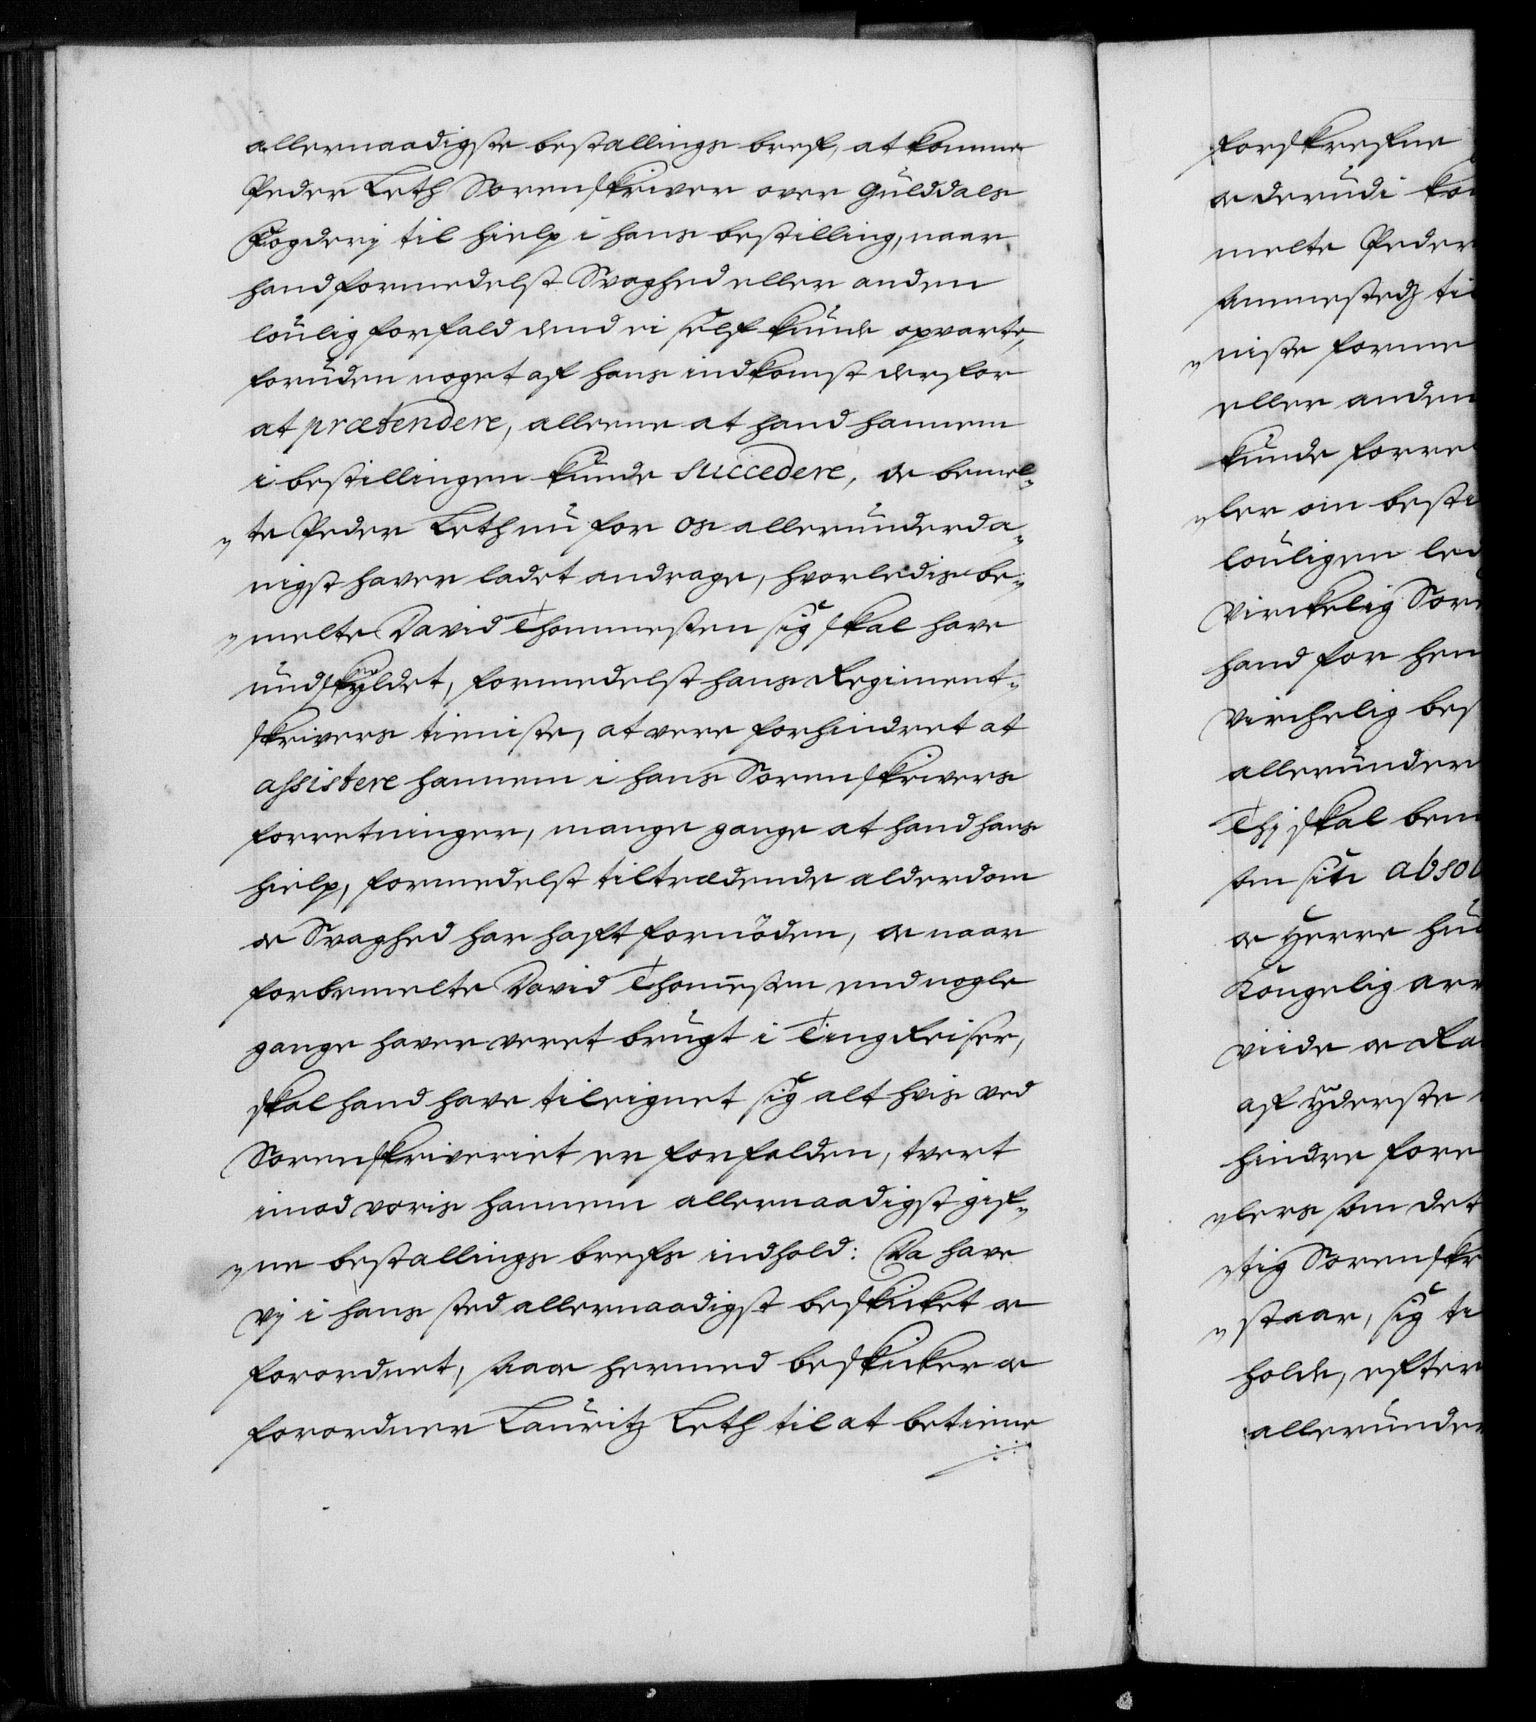 allernaadigste bestallings bref, at komme
Peder Leth Sorenskriver over Gulddals
Fogderj til hielp i hans bestilling, naar
hand formedelst Svaghed eller anden
loulig forfald dend ei self kunde opvarte,
foruden noget af hans indkomst derfor
at prætendere, alleene at hand hannem
i bestillingen kunde succedere, og bemel¬
„te Peder Leth nu for os allerunderda„
nigst haver ladet andrage, hvorledis be„
„melte David Thommesten sig skal have
undskyldet, formedelst hans Regiment„
skrivers tieniste, at vere forhindret at
assistere hannem i hans Sorenskrivers
forretninger, mange gange at hand hans
hielp, formedelst tiltrædende alderdom
og Svaghed har haft fornöden, og naar
forbemelte David Thom̄esten end nogle
gange haver veret brugt i Ting Reiser,
skal hand have tileignet sig alt hvis ved
Sorenskriveriet er forfalden, tvert
imod voris hannem allernaadigst gif„
„ne bestallings brefs indhold: Da have
vj i hans sted allernaadigst beskicket og
forordnet, saa og hermed beskicker og
forordner Lauritz Leth til at betiene
forskrefne
og derudi ko
melte Peder
Ammestedz ti
„niste forme
eller anden
kunde forre
„ler om besti
louligen led
Virckelig Sore
hand for hen
Virchelig bes
allerunder
Thj skal bem
som sin absol
og Herre hu
Kongelig arf
viide og Ra
af yderste
hindre fore
„lers som det
„tig Sorenskr
„staar, sig te
holde, efter
allerunder